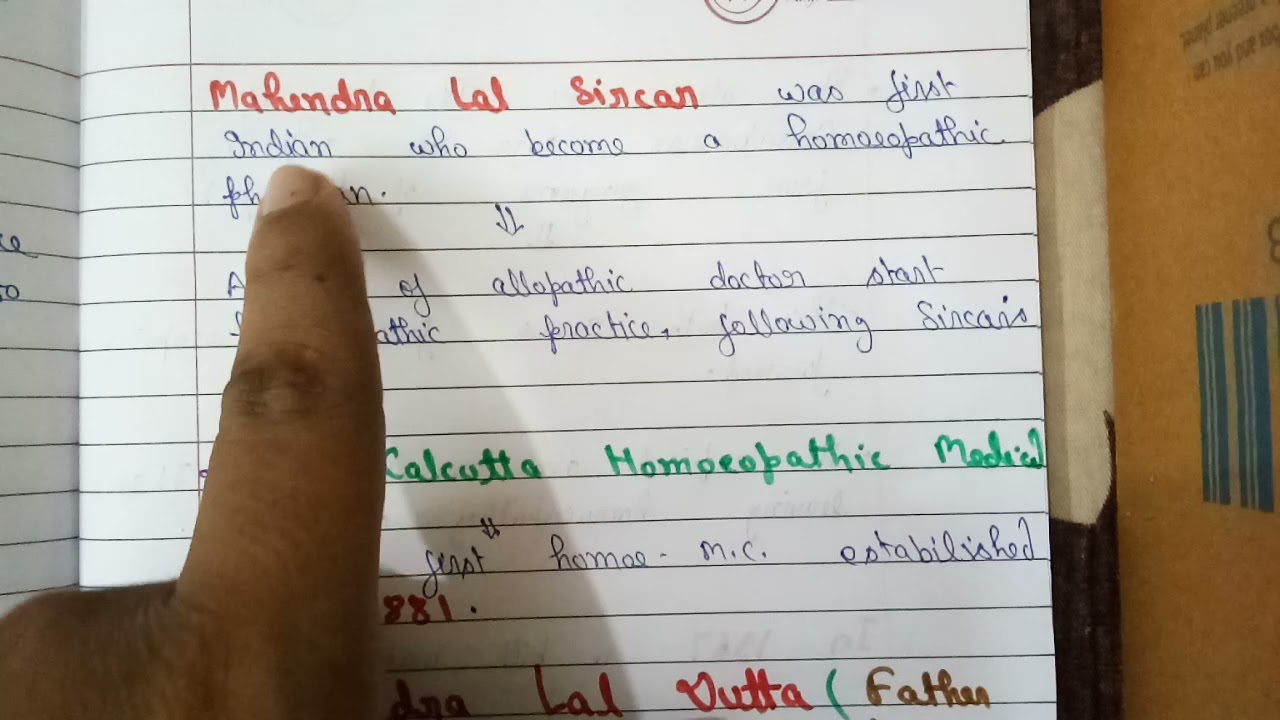 Mahendra Lal Sircar was first
Indian who become a homoeopathic
of allopathic doctor start
practice, following Sircar's
Calcutta Homoeopathic Medical
first homoe - M.C. estabilished
881.
Lal Dutta ( Father